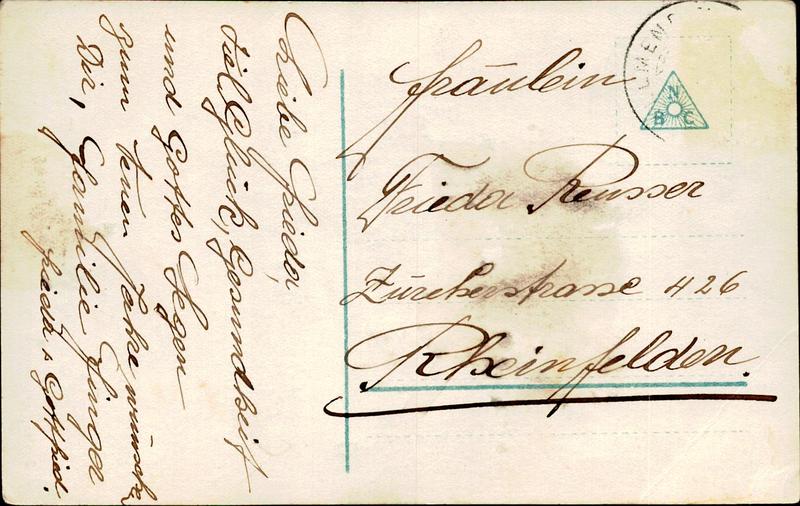 Liebe Frieda,
Viel Glück, Gesundheit
und Gottes Segen
zum neuen Jahre wünscht
Dir, Familie
Frieda & Gottfried.
Fräulein
Frieda Reusser
Zürcherstrasse 426
Rheinfelden.
N
B C